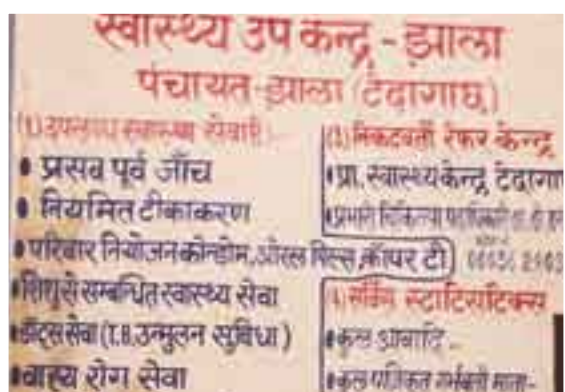 स्वास्थ्य उप केन्द्र - झाला
पंचायत-झाला (टेढागाछ)
(1) उपलब्ध स्वास्थ्य सेवाएँ:-
• प्रसव पूर्व जाँच
• नियमित टीकाकरण
• परिवार नियोजन-कोन्डोम, ओरल पिल्स, कॉपर टी
• शिशु से सम्बन्धित स्वास्थ्य सेवा
• डॉट्स सेवा (T.B. उन्मुलन सुविधा)
• वाह्य रोग सेवा
निकटवर्ती रेफर केन्द्र
• प्रा. स्वास्थ्य केन्द्र टेढागा
• प्रभारी चिकित्सा पदाधिकारी
सर्विस स्टाटिसटिक्स
• कुल आबादि -
• कुल पंजिकृत गर्भवती माता-